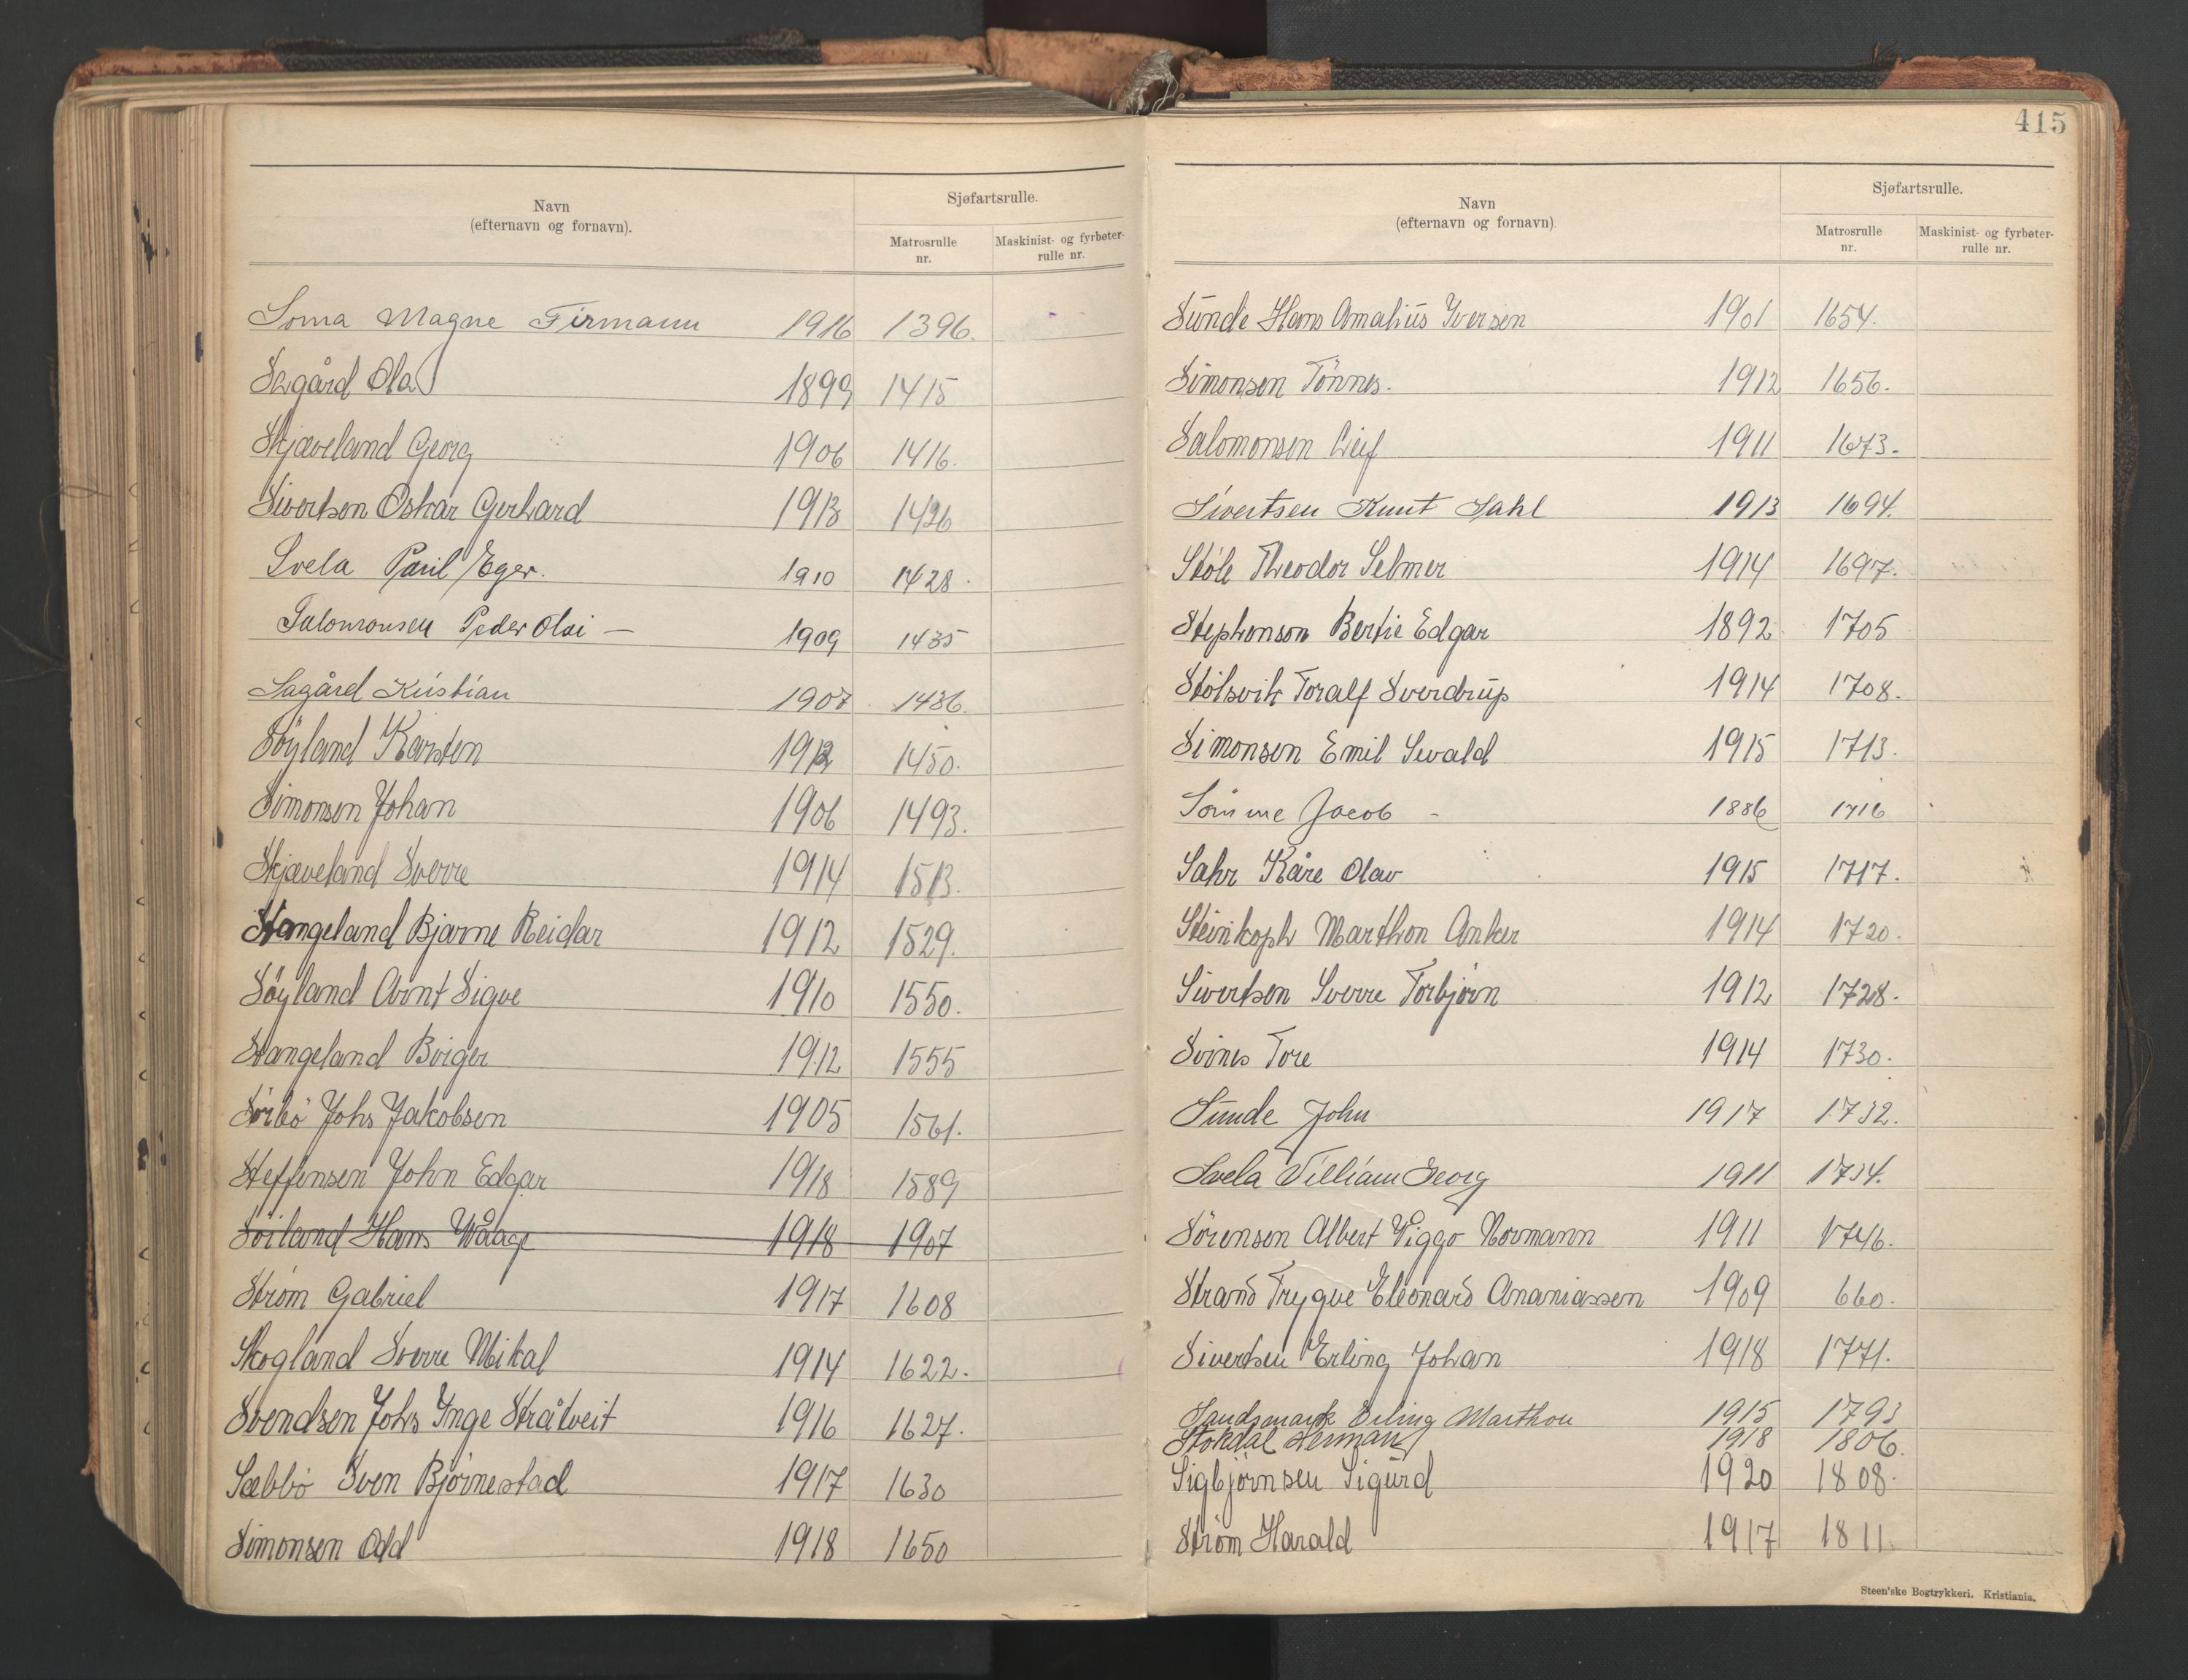 Navn
(efternavn og fornavn).
Sjøfartsrulle.
Matrosrulle nr.
Maskinist- og fyrbøter-rulle nr.
Soma Magne Firmann 1916 1396.
Sagård Ola 1899 1415
Skjæveland Georg 1906 1416.
Sivertsen Oskar Gerhard 1913 1426
Svela Paul Eger. 1910 1428.
Salomonsen Peder Olai — 1909 1435
Sagård Kristian 1907 1436.
Söyland Karsten 1912 1450.
Simonsen Johan 1906 1493.
Skjæveland Sverre 1914 1513.
Stangeland Bjarne Reidar 1912 1529.
Söyland Arnt Sigve 1910 1550.
Stangeland Birger 1912 1555
Sörbö Johs Jakobsen 1905 1561.
Steffensen John Edgar 1918 1589
Söiland Hans Waage 1918 1907
Strøm Gabriel 1917 1608
Skogland Sverre Mikal 1914 1622.
Svendsen Johs Ynge Stråtveit 1916 1627.
Sæbbö Sven Bjørnestad 1917 1630
Simonsen Odd 1918 1650
415
Navn
(efternavn og fornavn).
Sjøfartsrulle.
Matrosrulle nr.
Maskinist- og fyrbøter-rulle nr.
Sunde Hans Amalius Iversen 1901 1654.
Simonsen Tönnes. 1912 1656.
Salomonsen Leif 1911 1673.
Sivertsen Knut Sahl 1913 1694.
Støle Theodor Selmer 1914 1697.
Stephenson Bertie Edgar 1892 1705
Stölsvik Toralf Sverdrup 1914 1708.
Simonsen Emil Sevald 1915 1713.
Sömme Jacob - 1886 1716
Sahr Kåre Olav 1915 1717.
Steinkoph Marthon Anker 1914 1720.
Sivertsen Sverre Torbjörn 1912 1728.
Svines Tore 1914 1730.
Sunde John 1917 1732.
Svela Villiam Georg 1911 1734.
Sörensen Albert Viggo Normann 1911 1746.
Strand Trygve Eleonard Ananiassen 1909 660.
Sivertsen Erling Johan 1918 1771.
Sandsmark Erling Marthon 1915 1793
Stokdal Herman 1918 1806.
Sigbjörnsen Sigurd 1920 1808.
Strøm Harald 1917 1811.
Steen'ske Bogtrykkeri. Kristiania.